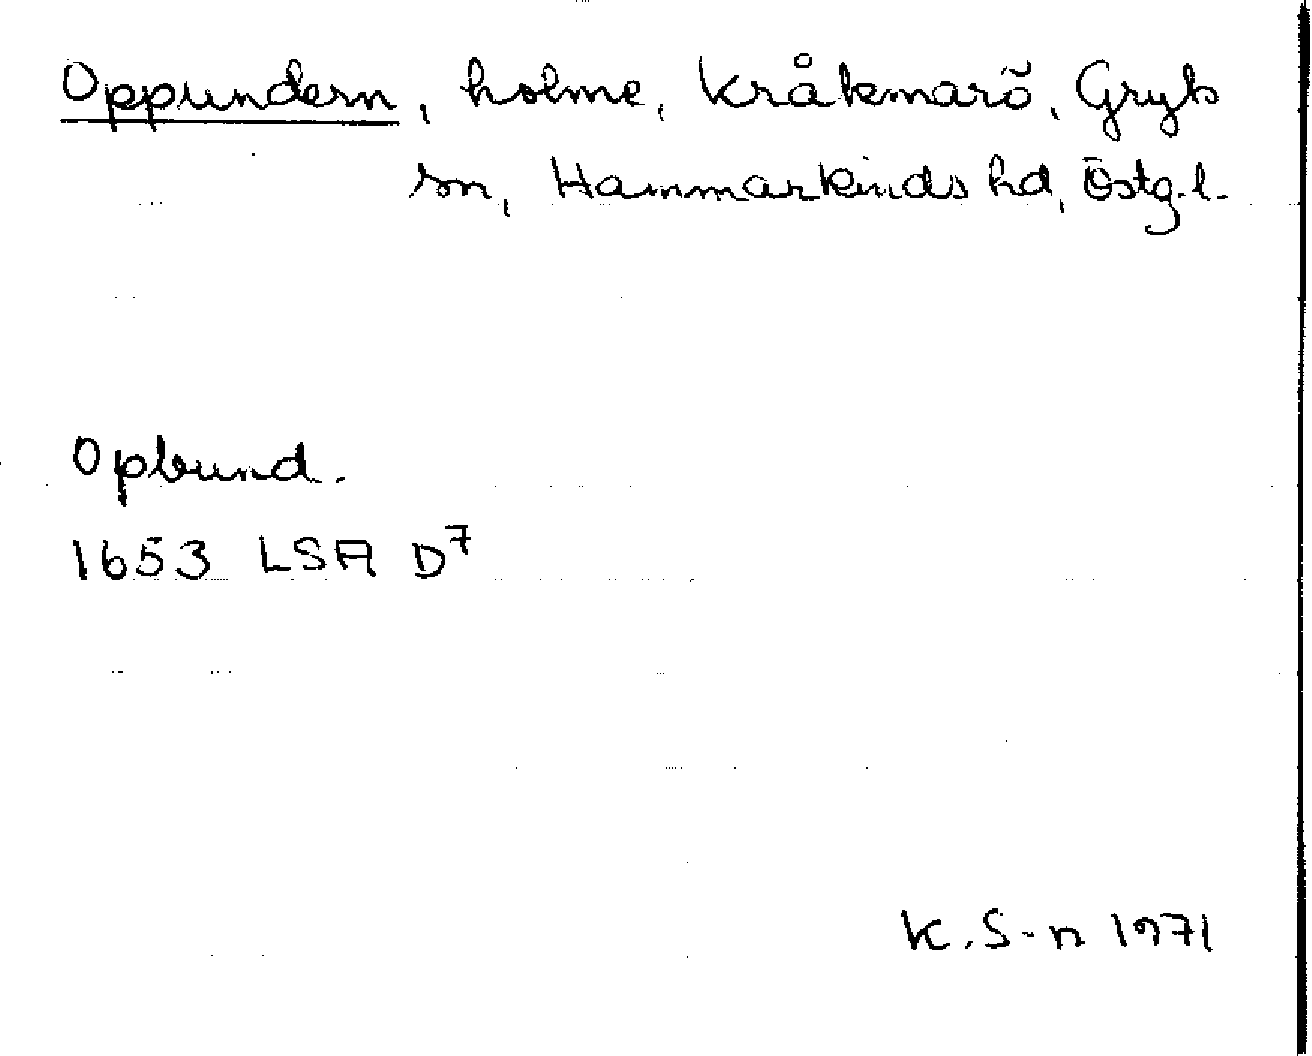 Oppundern, holme, Kråkmarö, Gryts
sn, Hammarkinds hd, Östg.l.
Opbund.
1653 LSA D7
K. S-n 1971